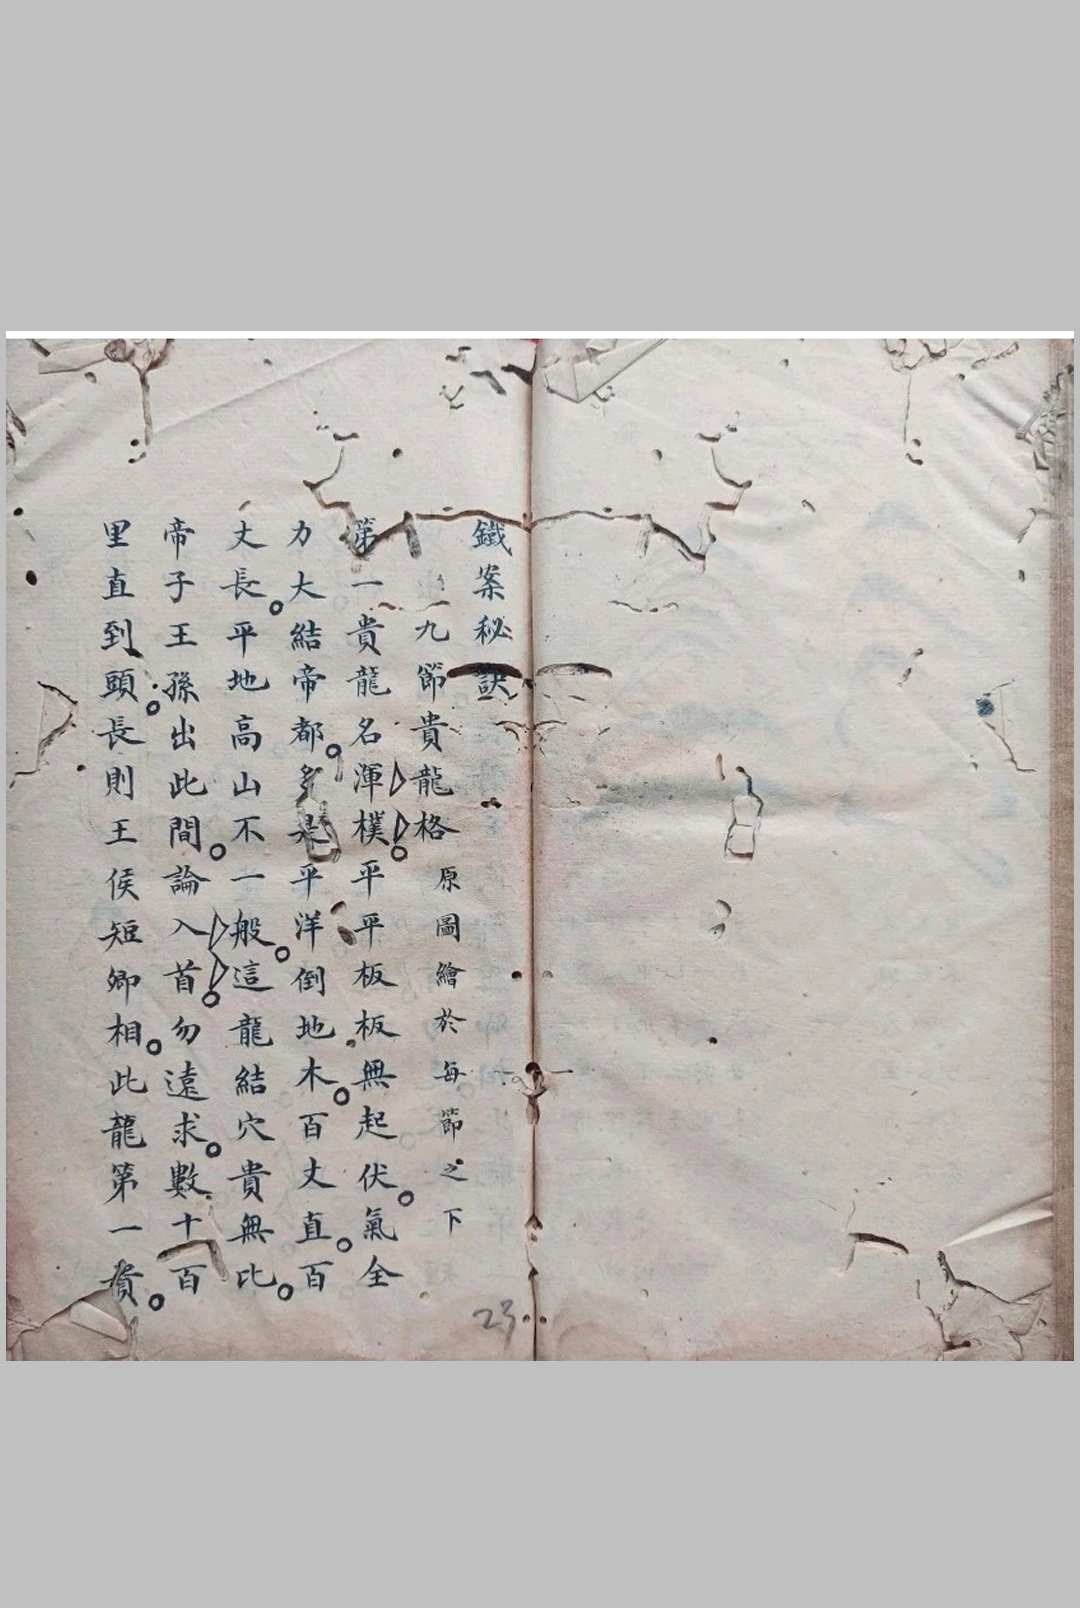 鐵案秘訣
九節貴龍格 原圖繪於每節之下
第一貴龍名渾樸平平板板無起伏氣全
力大結帝都多是平洋倒地木百丈直百
丈長平地高山不一般這龍結穴貴無比
帝子王孫出此間論入首勿遠求數十百
里直到頭長則王侯短卿相此龍第一貴
23